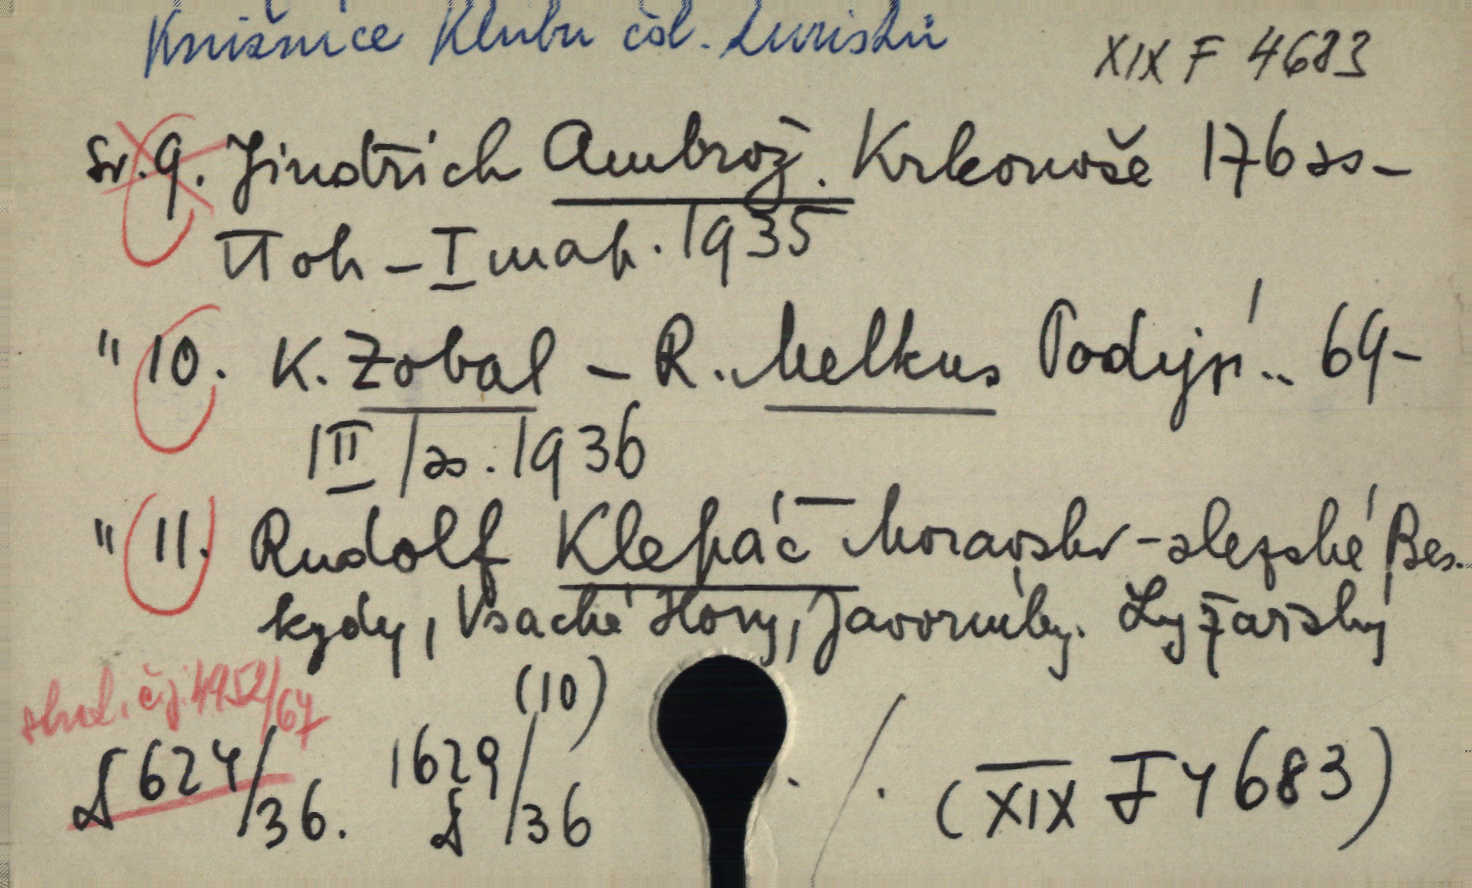 Knižnice Klubu čsl. turistů
XIX F 4683
Sv. 9. Jindřich Ambrož. Krkonoše 176 ss -
II ob - I map. 1935
" 10. K. Zobal - R. Melkus Podyjí.. 69 -
III/ss. 1936
" 11. Rudolf Klepáč - Moravsko-slezské Bes-
kydy, Vsacké Hory, Javorníky. Lyžařský
čj. 4952/67
(10)
624/36. 1629/36
. / . (XIX F 4683)